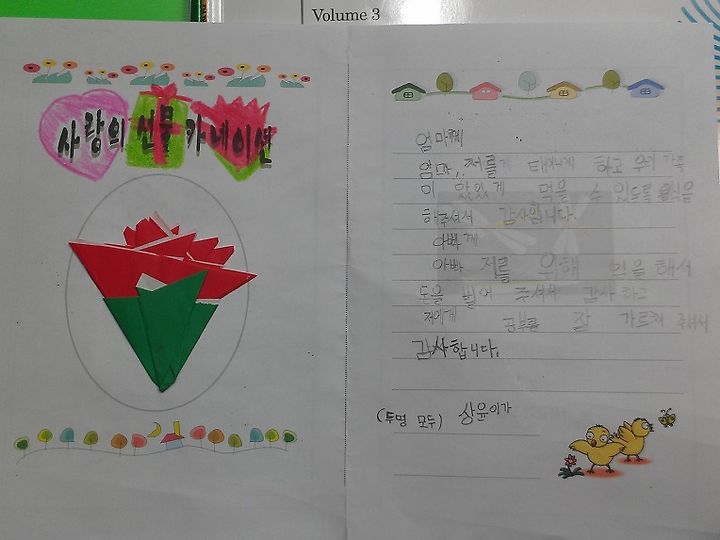 Volume 3
사랑의 선물 카네이션
엄마께
엄마, 저를 태어나게 하고 우리 가족
이 맛있게 먹을 수 있도록 음식을
해주셔서 감사합니다.
아빠께
아빠 저를 위해 일을 해서
돈을 벌어 주셔서 감사하고
저에게 공부를 잘 가르쳐 주셔서
감사합니다.
(두명 모두) 상윤이가